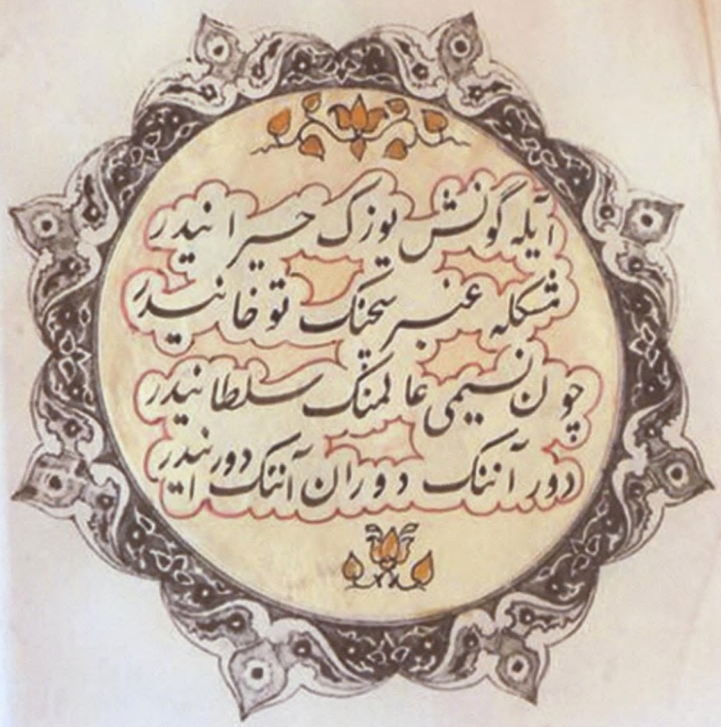 آیله گونش یوزک حیرانیدر
مشکله عنبر سچنک توخانیدر
چون نسیمی عالمنک سلطانیدر
دور آننک دوران آننک دورنیدر